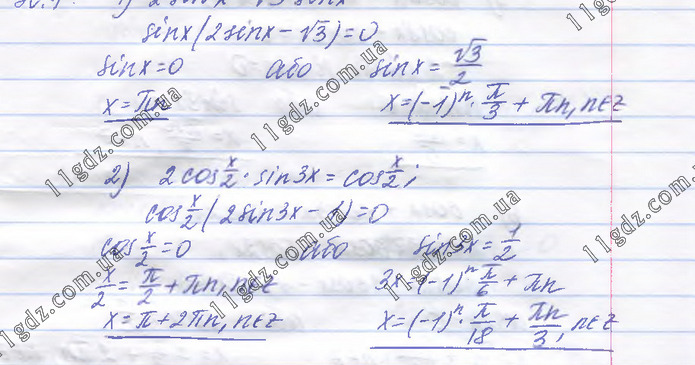 sinx(2sinx-√3)=0
sinx=0 або sinx=√3/2
x=πn x=(-1)ⁿ·π/3+πn, n∈z
2) 2cos x/2·sin3x=cos x/2;
cos x/2(2sin3x-1)=0
cos x/2=0 або sin3x=1/2
x/2=π/2+πn, n∈z 3x=(-1)ⁿ π/6+πn
x=π+2πn, n∈z x=(-1)ⁿ·π/18+πn/3, n∈z
11gdz.com.ua
11gdz.com.ua
11gdz.com.ua
11gdz.com.ua
11gdz.com.ua
11gdz.com.ua
11gdz.com.ua